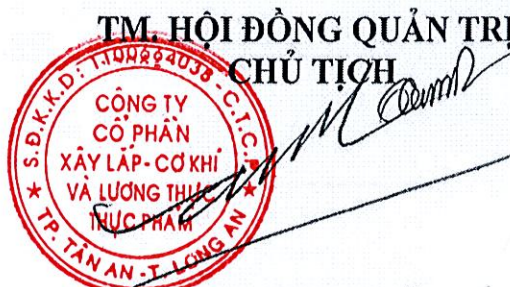 TM. HỘI ĐỒNG QUẢN TRỊ
CHỦ TỊCH
S.Đ.K.K.D: 1100664038 - C.T.C.P
CÔNG TY
CỔ PHẦN
XÂY LẮP - CƠ KHÍ
VÀ LƯƠNG THỰC
THỰC PHẨM
TP. TÂN AN - T. LONG AN